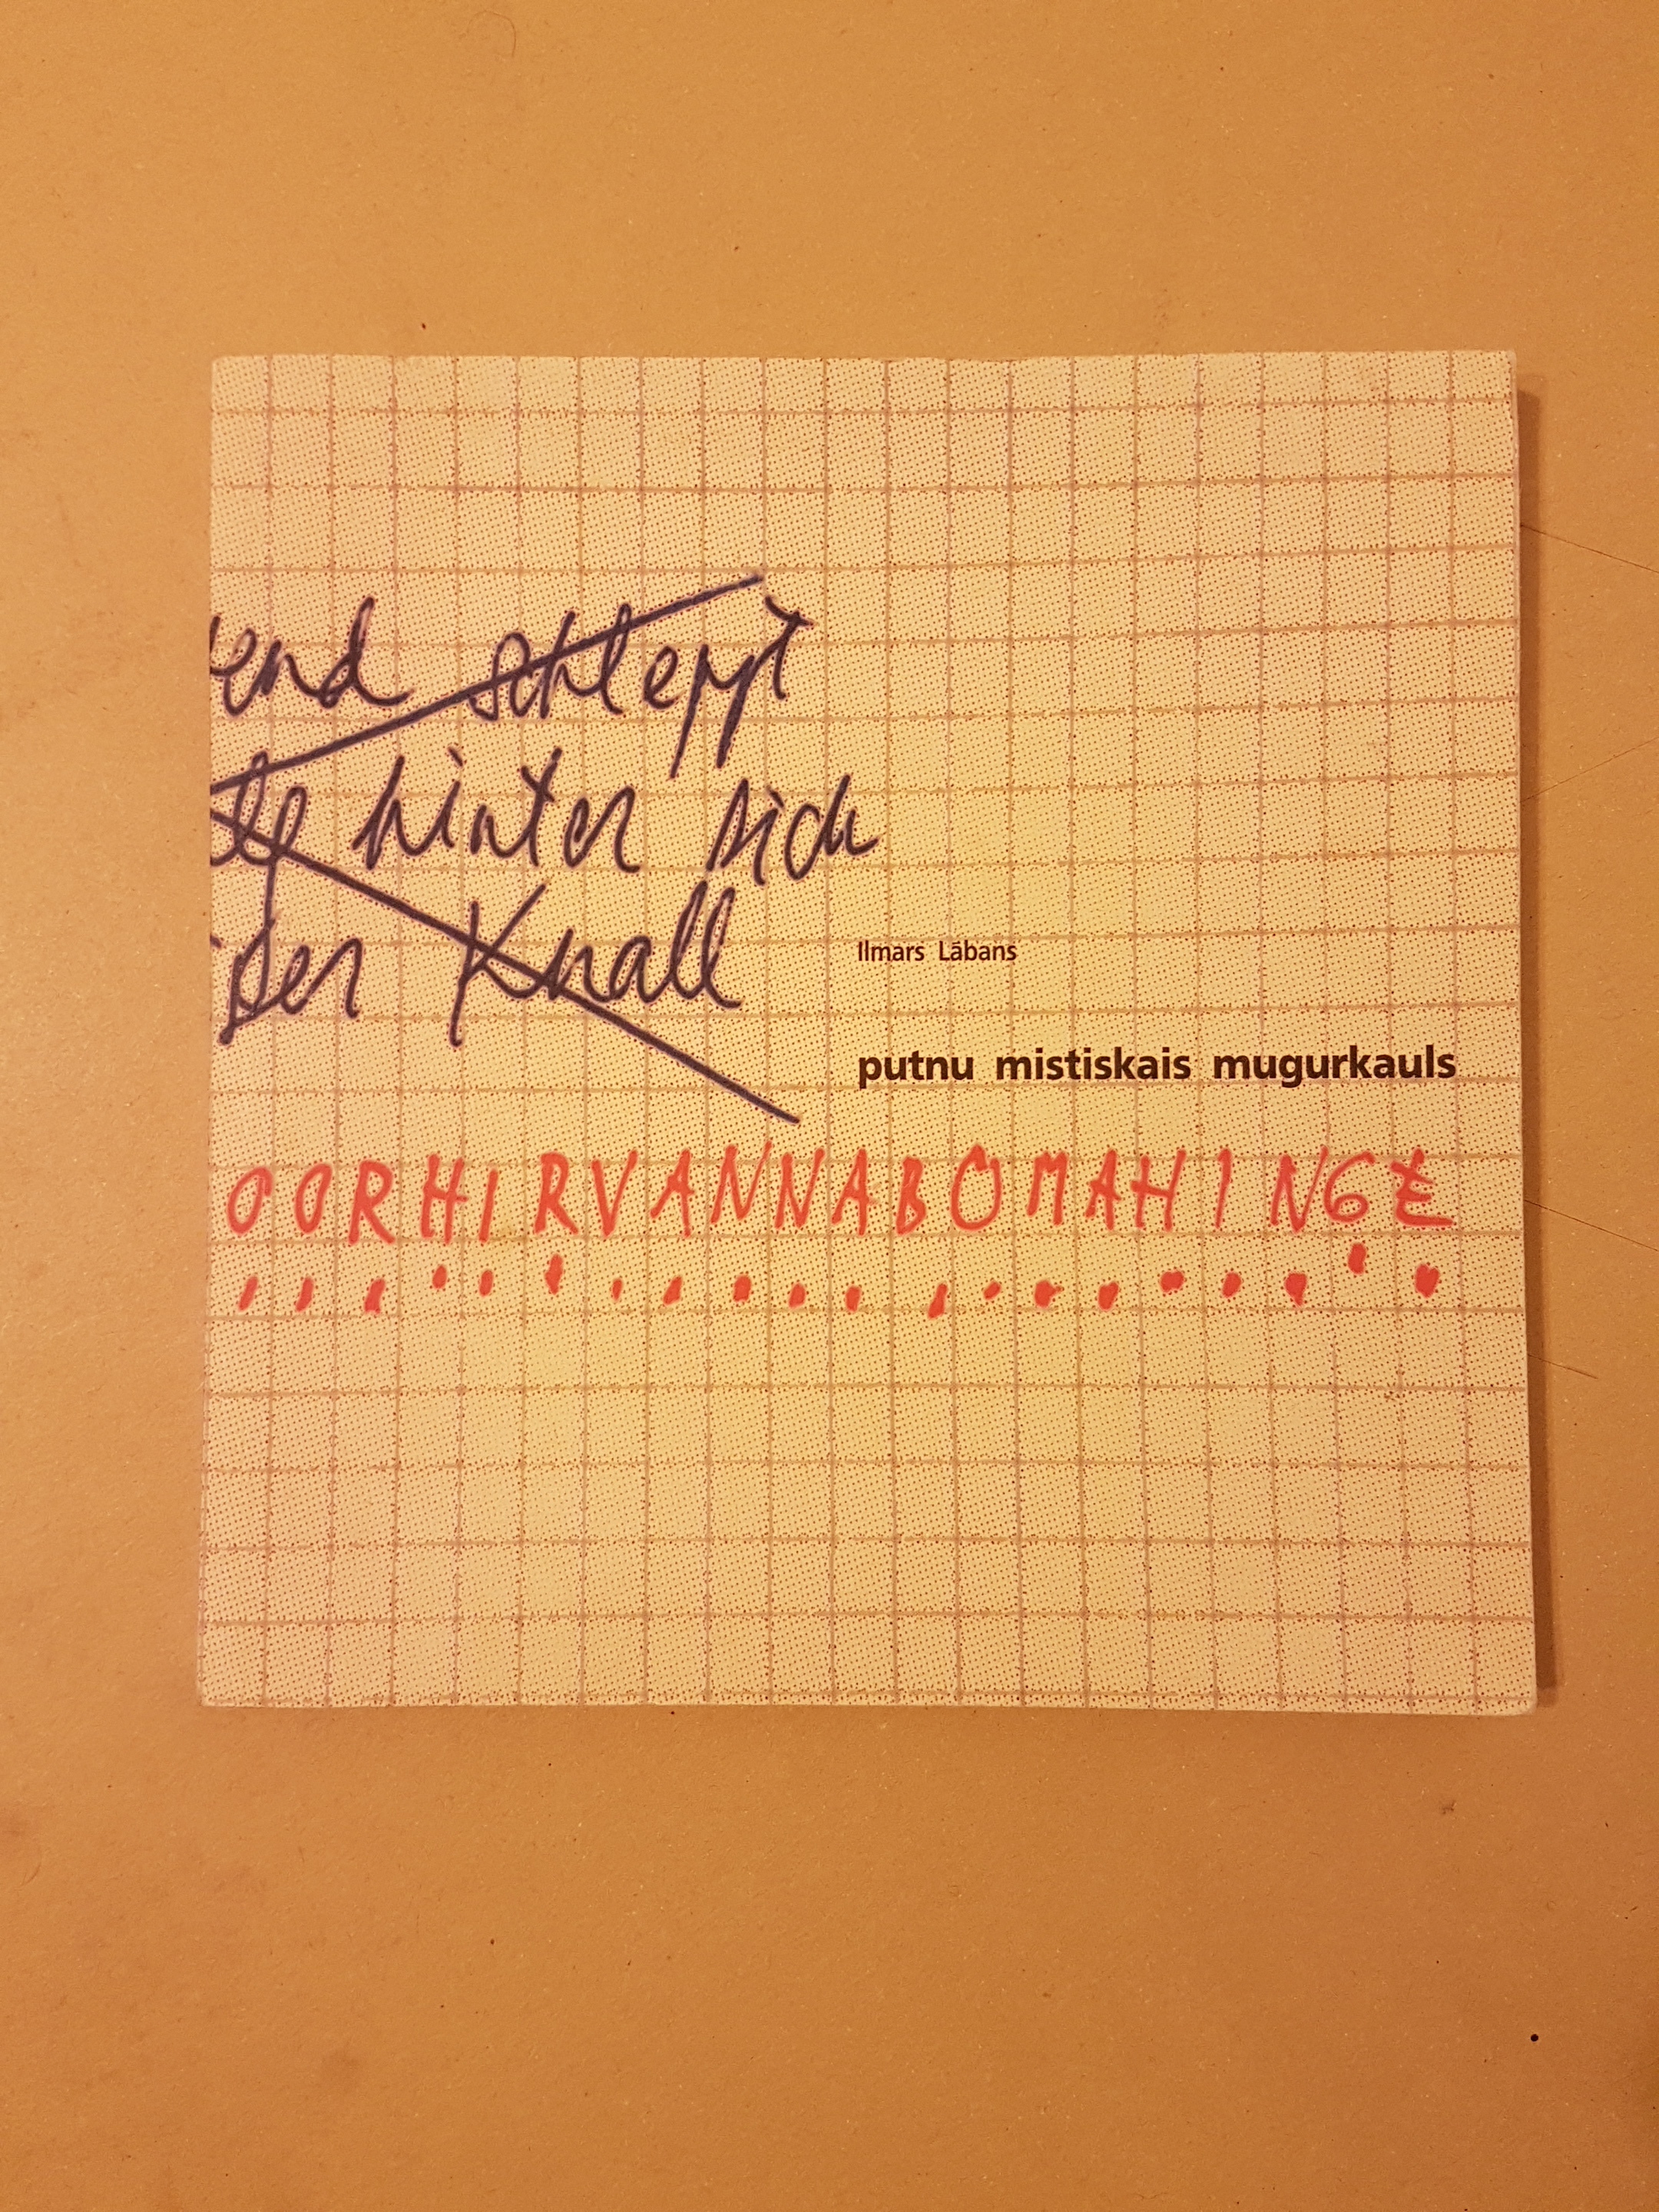 end schleppt
hinter sich
der Knall
Ilmars Lābans
putnu mistiskais mugurkauls
OORHIRVANNABOMAHINGE